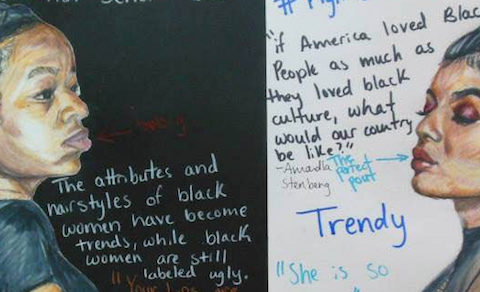 The attributes and
hairstyles of black
women have become
trends, while black
women are still
labeled ugly.
"Your lips are
"if America loved Blac
People as much as
they loved black
culture, what
would our country
be like?"
-Amandla
Stenberg
The perfect
pout
Trendy
"She is so